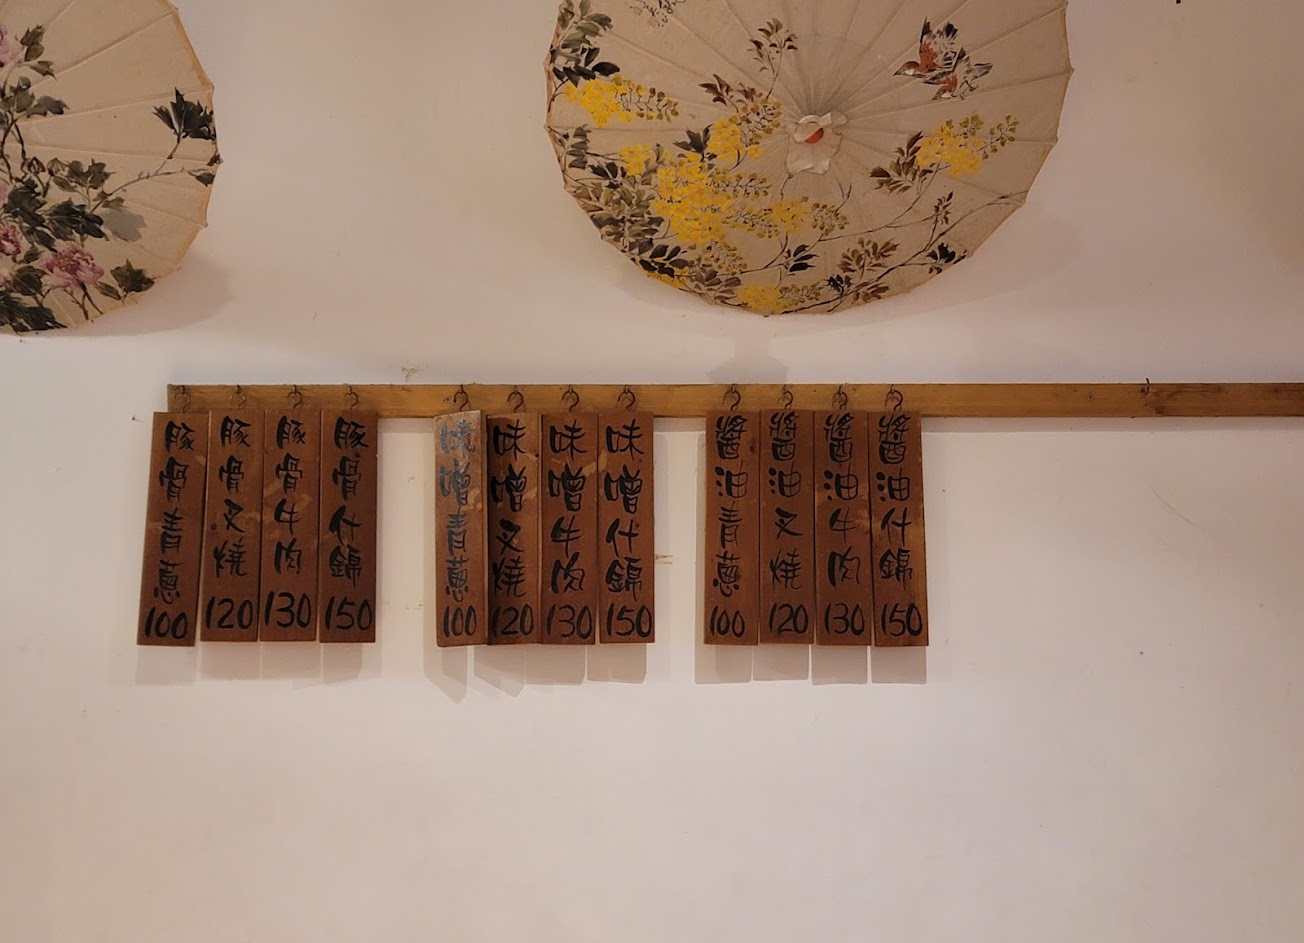 豚骨青蔥100
豚骨叉燒120
豚骨牛肉130
豚骨什錦150
味噌青蔥100
味噌叉燒120
味噌牛肉130
味噌什錦150
醬油青蔥100
醬油叉燒120
醬油牛肉130
醬油什錦150